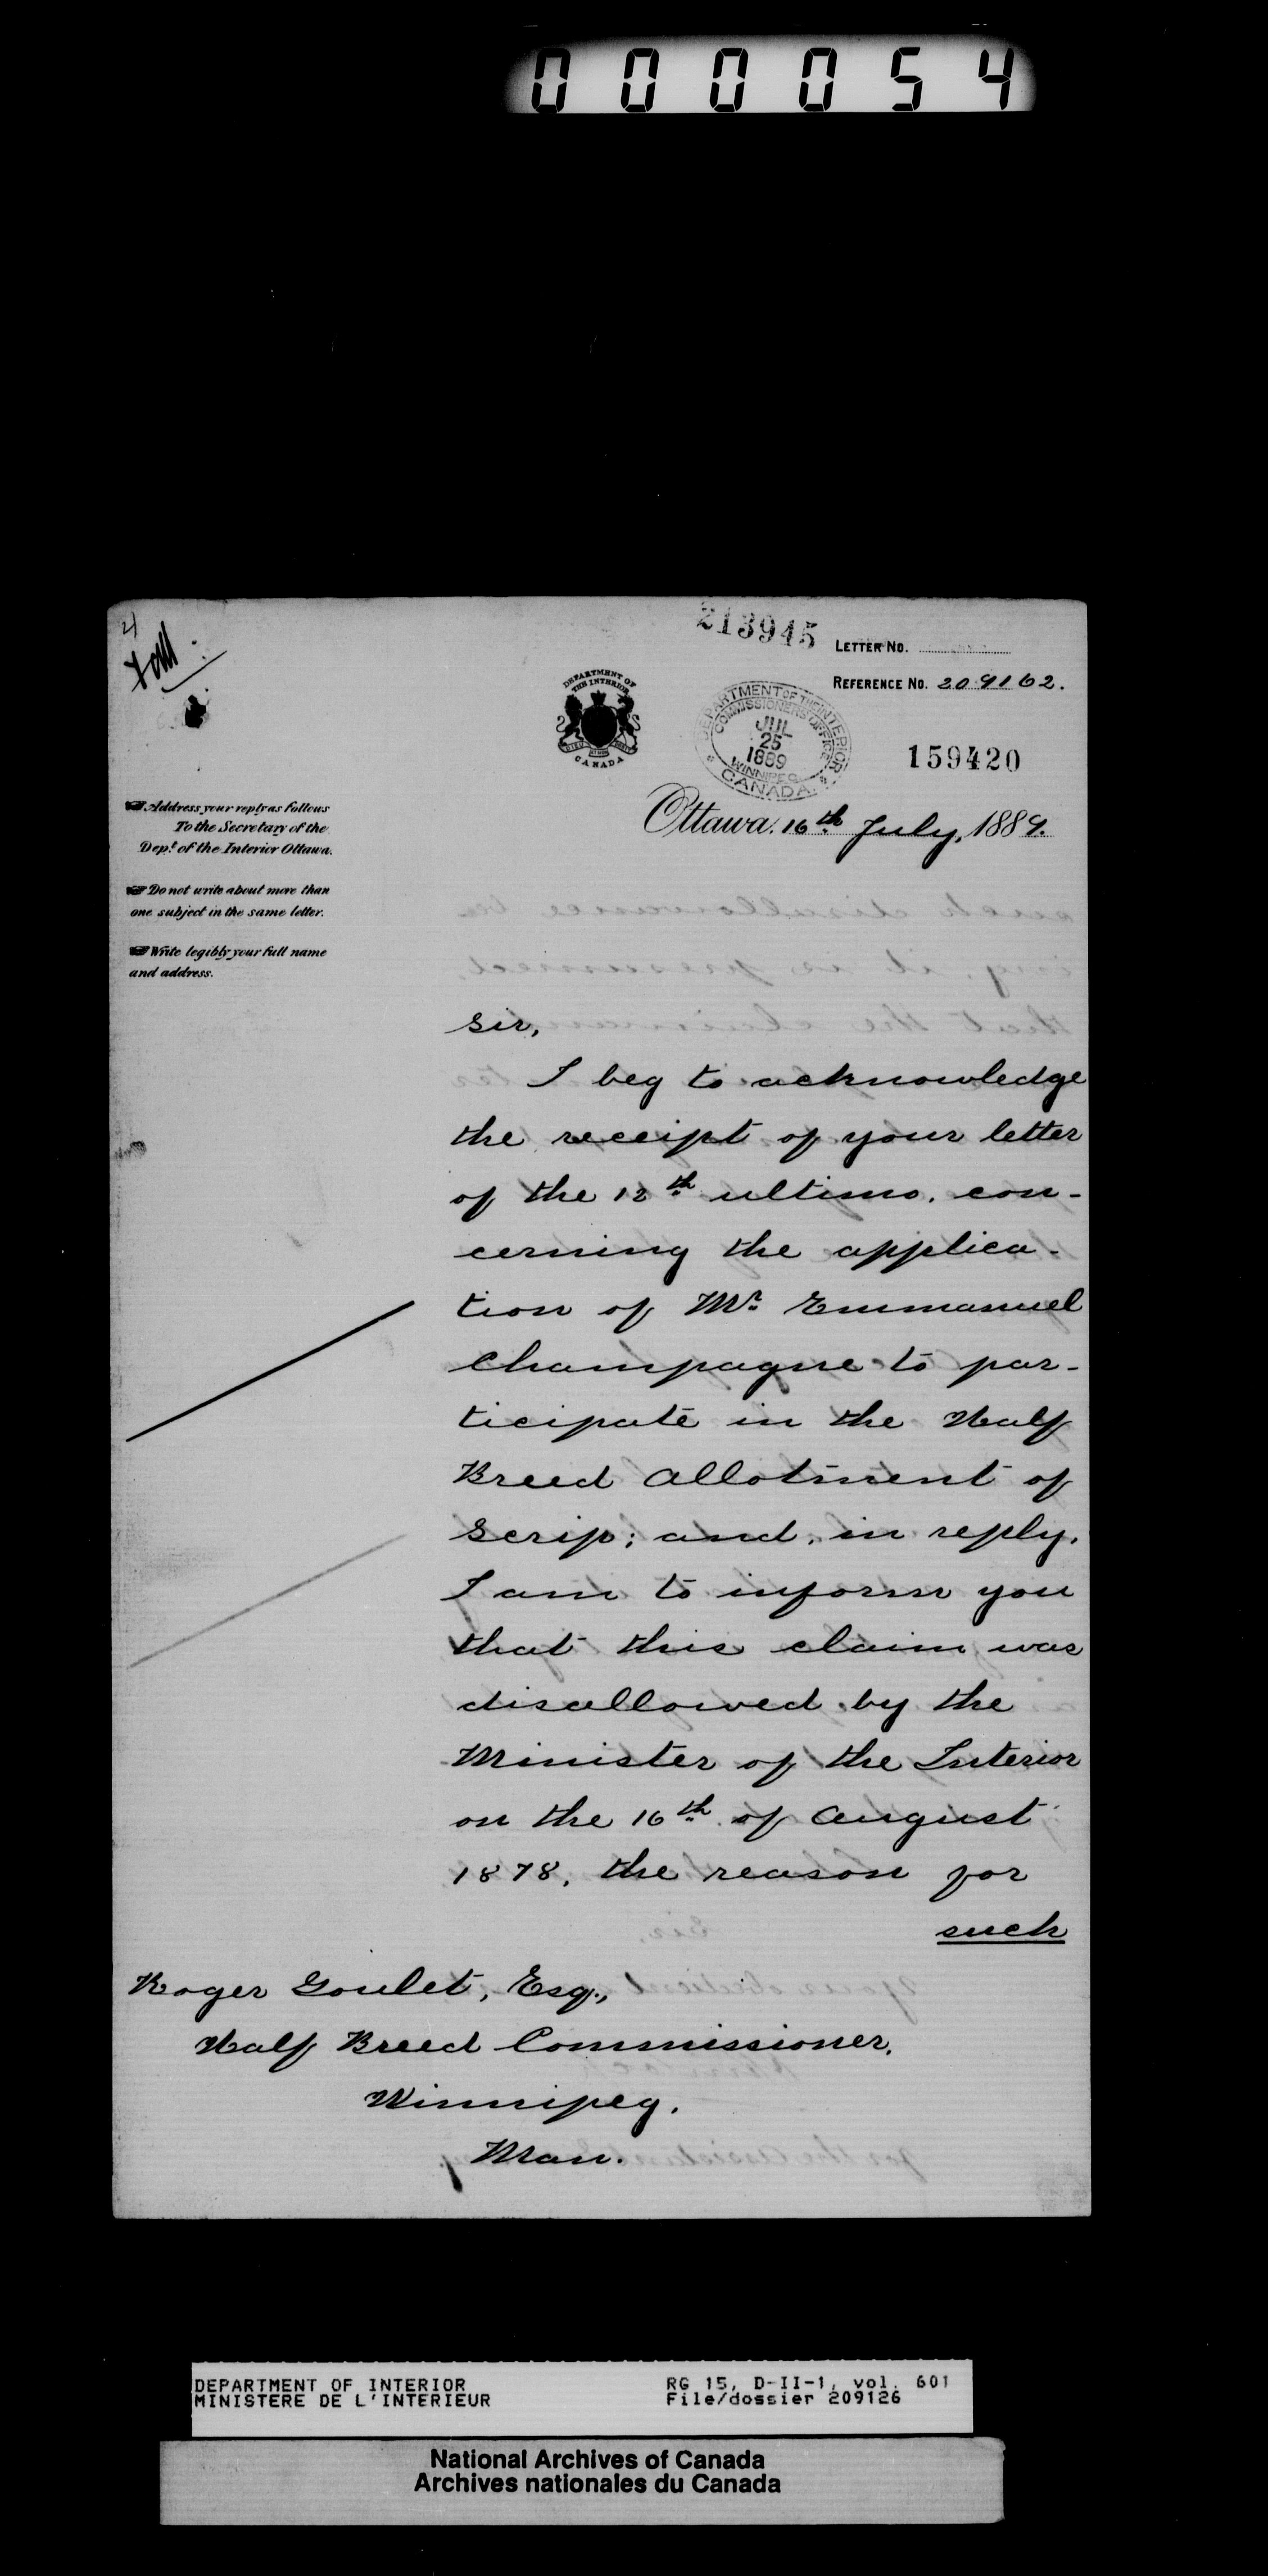 000054
213945
LETTER NO.
REFERENCE NO. 209162.
DEPARTMENT OF
THE INTERIOR
CANADA
DEPARTMENT OF THE INTERIOR
COMMISSIONERS OFFICE
JUL
25
1889
WINNIPEG
CANADA
159420
Ottawa, 16th July, 1889.
Address your reply as follows
To the Secretary of the
Dept. of the Interior Ottawa.
Do not write about more than
one subject in the same letter.
Write legibly your full name
and address.
Sir,
I beg to acknowledge
the receipt of your letter
of the 12th ultimo, con-
cerning the applica-
tion of Mr. Emmanuel
Champagne to par-
ticipate in the Half
Breed Allotment of
Scrip; and, in reply,
I am to inform you
that this claim was
disallowed by the
Minister of the Interior
on the 16th of August
1878, the reason for
such
Roger Goulet, Esq.,
Half Breed Commissioner,
Winnipeg,
Man.
DEPARTMENT OF INTERIOR
MINISTERE DE L'INTERIEUR
RG 15, D-II-1, vol. 601
File/dossier 209126
National Archives of Canada
Archives nationales du Canada